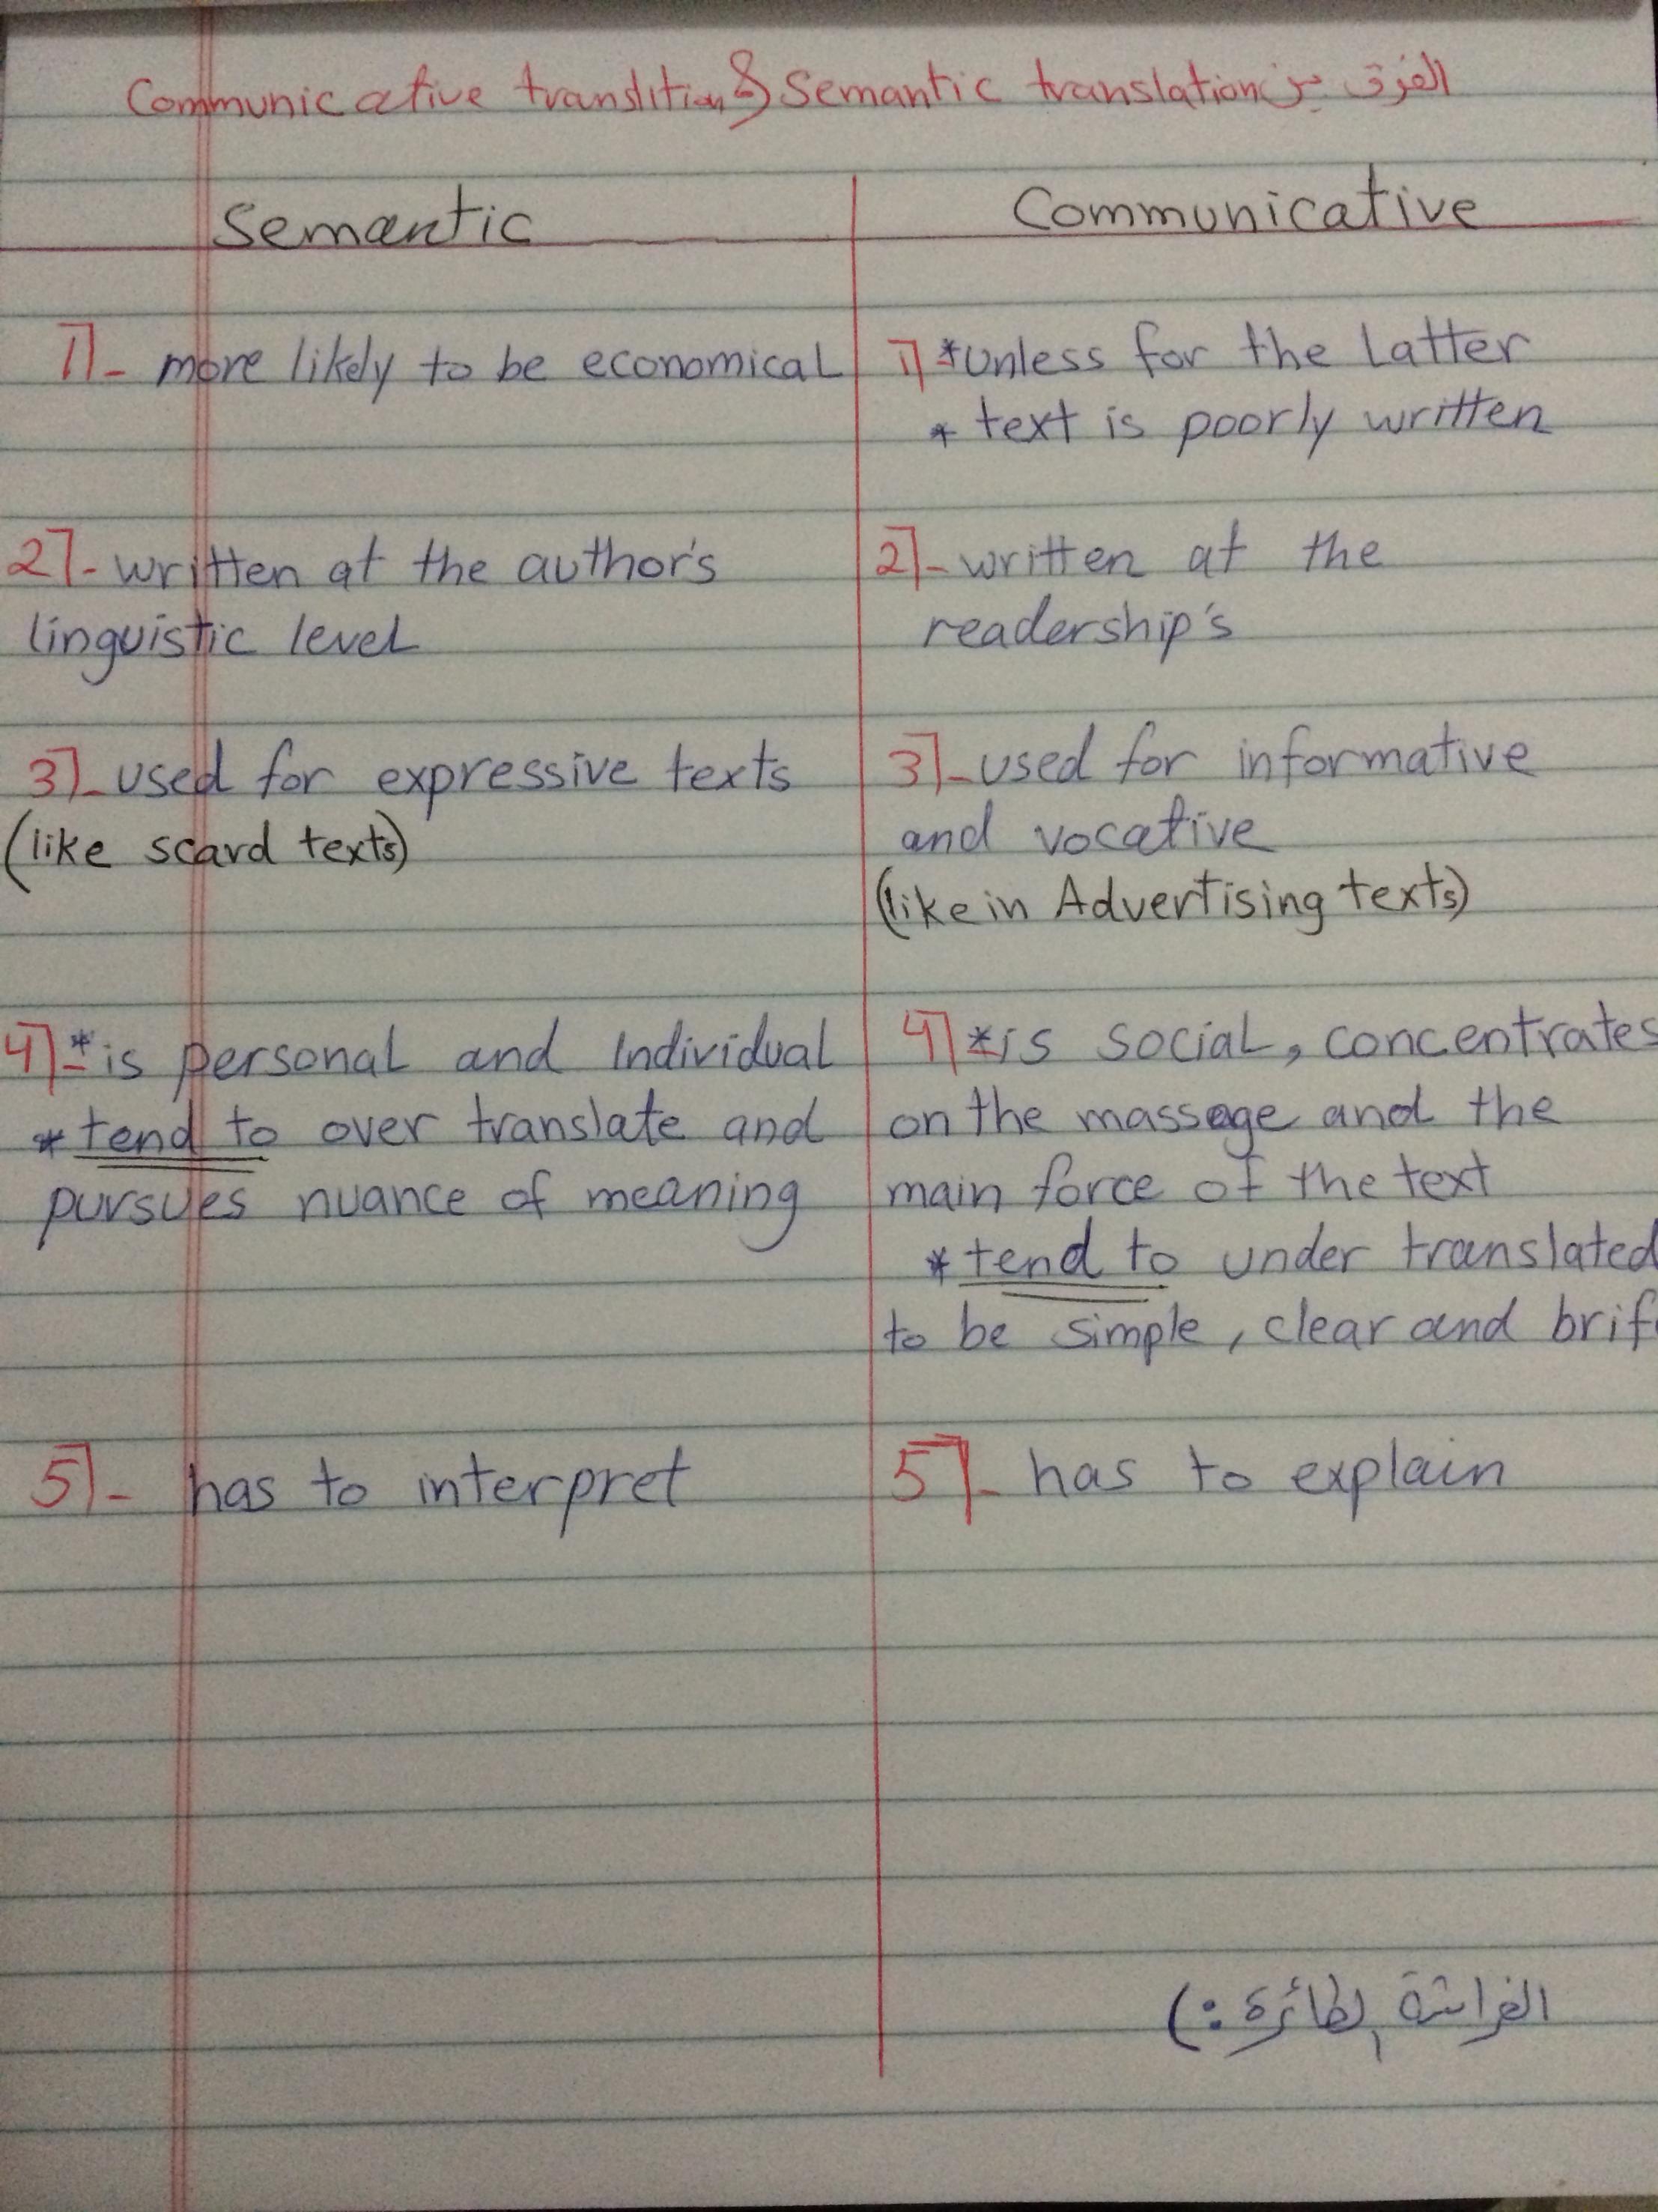 الفرق بين Communicative translition & Semantic translation
Semantic
1]- more likely to be economical
2]- written at the author's
linguistic level
3]- used for expressive texts
(like scard texts)
4]- *is personal and Individual
* tend to over translate and
pursues nuance of meaning
5]- has to interpret
Communicative
1] *unless for the Latter
* text is poorly written
2]- written at the
readership's
3]- used for informative
and vocative
(like in Advertising texts)
4] *is social, concentrates
on the massage and the
main force of the text
* tend to under translated
to be simple, clear and brif
5]- has to explain
الفراشة الطائرة :)